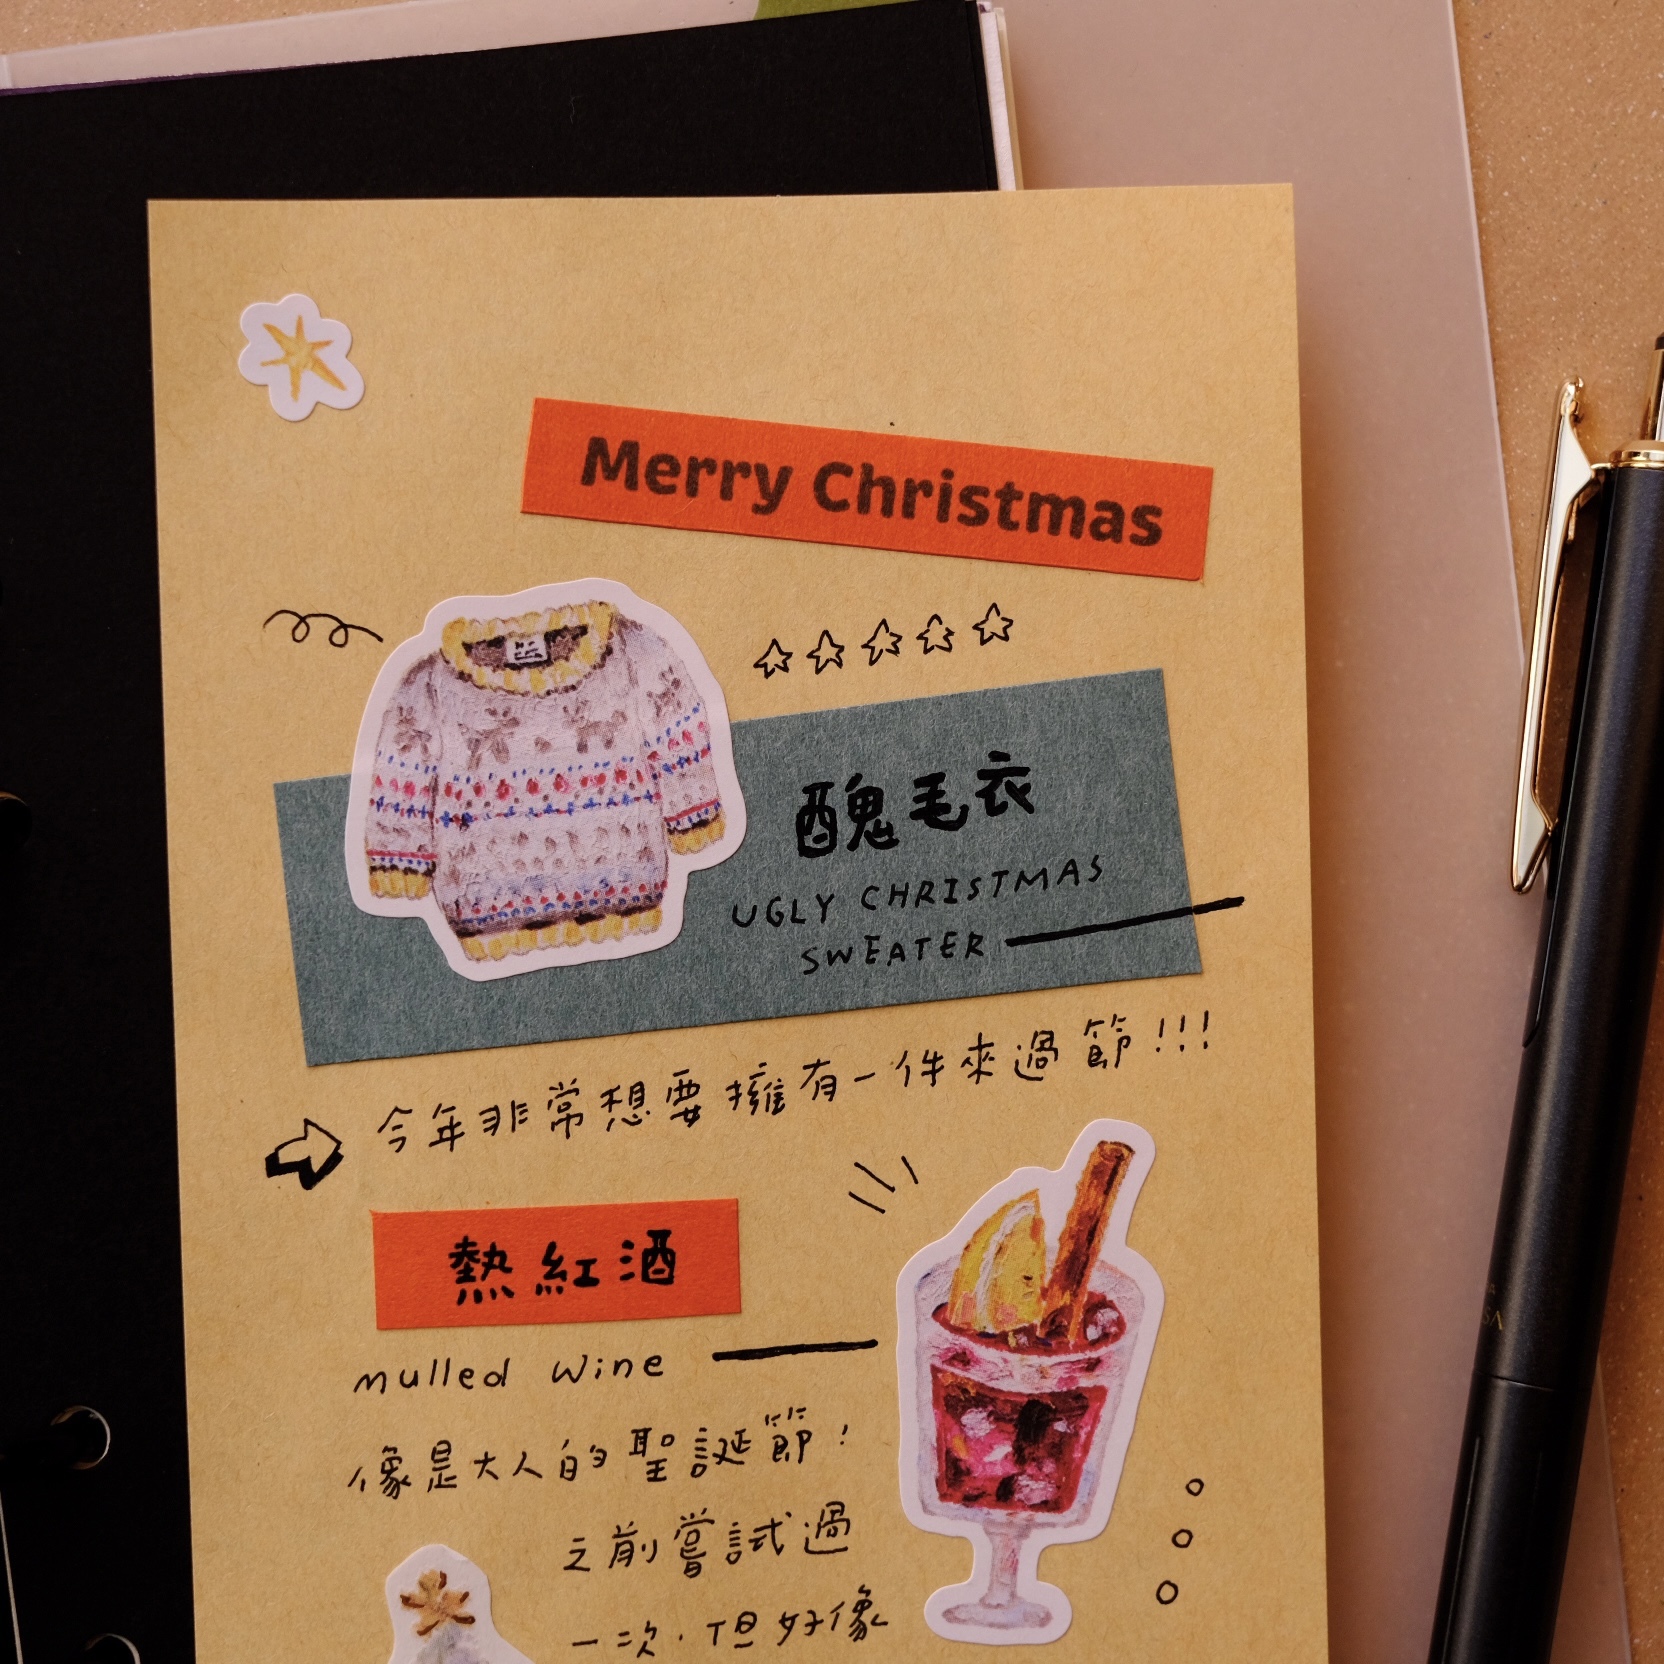 Merry Christmas
醜毛衣
UGLY CHRISTMAS
SWEATER
今年非常想要擁有一件來過節!!!
熱紅酒
mulled wine
像是大人的聖誕節!
之前嘗試過
一次,但好像